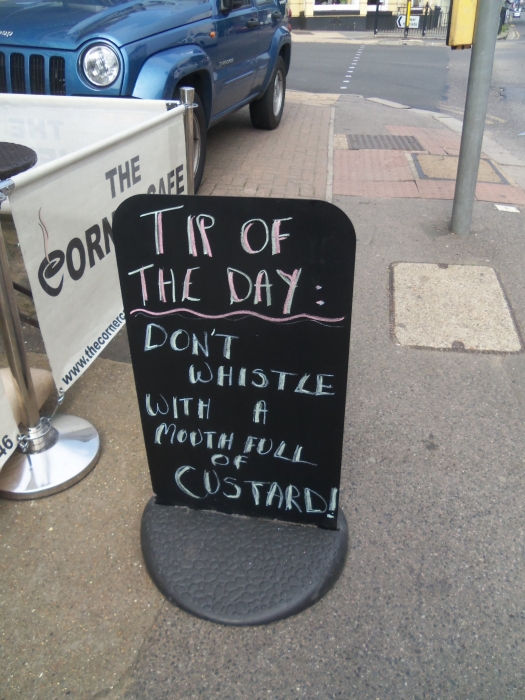 THE
CORN
CAFE
www.thecorner
46
TIP OF
THE DAY:
DON'T
WHISTLE
WITH A
MOUTH FULL
OF
CUSTARD!